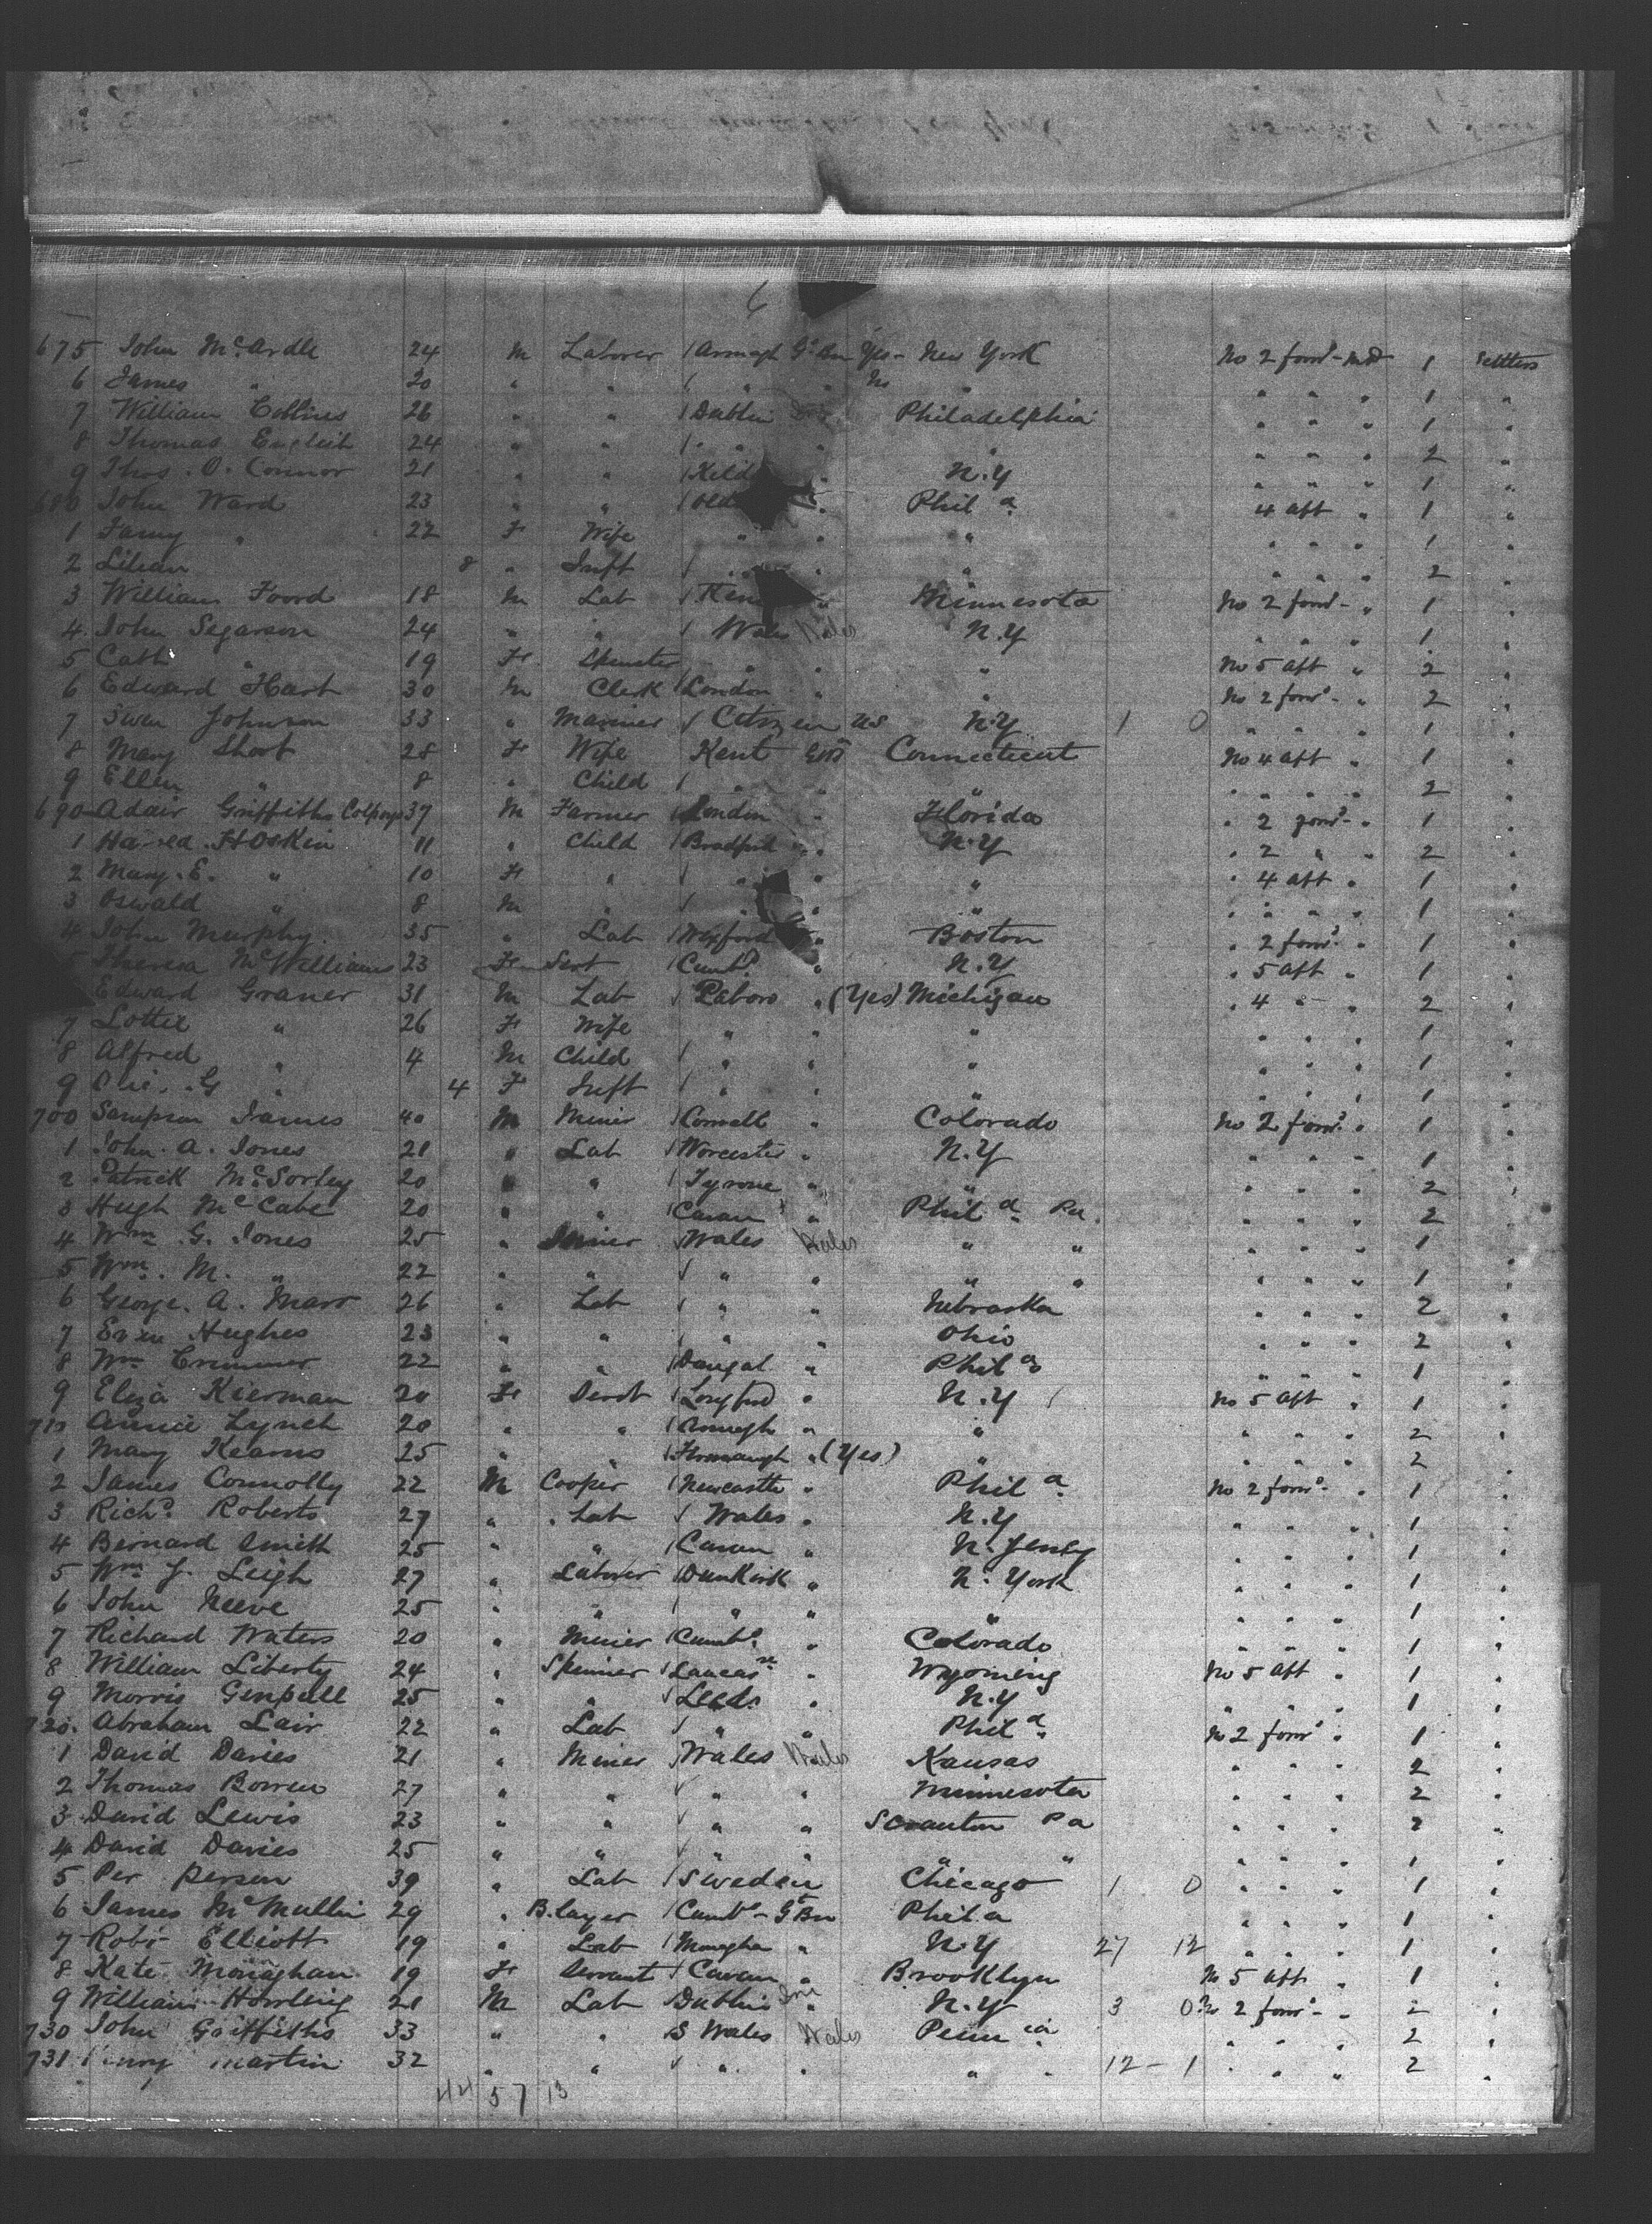 6
675 John McArdle 24 m Laborer / Armagh Gt Bn Yes - New York No 2 forwd - md 1 Settlers
6 James " 20 " " / " " No " " " " 1 "
7 William Collins 26 " " / Dublin " Philadelphia " " " 1 "
8 Thomas English 24 " " / " " " " " " " 2 "
9 Thos. O. Connor 21 " " / Kild " N.Y " " " 1 "
680 John Ward 23 " " / Old " Phil a 4 aft " 1 "
1 Fanny " 22 F Wife " " " " " " 1 "
2 Lilian 8 " Inft / " " " " " " 2 "
3 William Foord 18 m Lab / Ken " Minnesota No 2 forwd - " 1 "
4 John Segarson 24 " " / Wales Wales N.Y " " " 1 "
5 Cath " 19 F Spinster " " " No 5 aft " 2 "
6 Edward Hart 30 m Clerk / London " " No 2 forwd - " 2 "
7 Swen Johnson 33 " Mariner / Citizen US N.Y 1 0 " " " 1 "
8 Mary Short 28 F Wife Kent GtB Connecticut No 4 aft " 1 "
9 Ellen " 8 " Child / " " " " " " 2 "
690 Adair Griffiths 37 m Farmer / London " Florida " 2 forwd - " 1 "
1 Harold Hoskin 11 " Child / Bradford " N.Y " 2 " " 2 "
2 Mary. E. " 10 F " / " " " " 4 aft " 1 "
3 Oswald " 8 m " / " " " " " " " 1 "
4 John Murphy 35 " Lab / Wexford " Boston " 2 forwd " 1 "
5 Theresa McWilliams 23 F Servt / Cumbd " N.Y " 5 aft " 1 "
Edward Graner 31 m Lab / " (Yes) Michigan " 4 " " 2 "
7 Lottie " 26 F Wife " " " " " " 1 "
8 Alfred " 4 m Child / " " " " " " 1 "
9 G " 4 F Inft / " " " " " " 1 "
700 Sampson James 40 m Miner / Cornwall " Colorado No 2 forwd " 1 "
1 John. A. Jones 21 " Lab / Worcester " N.Y " " " 1 "
2 Patrick McSorley 20 " " / Tyrone " " " " " 2 "
3 Hugh McCabe 20 " " / Cavan " Phil a Pa. " " " 2 "
4 Wm G. Jones 25 " Miner / Wales Wales " " " " " 1 "
5 Wm. M. " 22 " " / " " " " " " " 1 "
6 George. A. Marr 26 " Lab / " " Nebraska " " " 2 "
7 Even Hughes 23 " " / " " Ohio " " " 2 "
8 Wm Crimmer 22 " " / Dongal " Phil a " " " 1 "
9 Eliza Kiernan 20 F Servt / Longford " N.Y No 5 aft " 1 "
710 Annie Lynch 20 " " / Armagh " " " " " 2 "
1 Mary Kearns 25 " " / Fermanagh " (Yes) " " " " 2 "
2 James Connolly 22 m Cooper / Newcastle " Phil a No 2 forwd - " 1 "
3 Richd Roberts 27 " Lab / Wales " N.Y " " " 1 "
4 Bernard Smith 25 " " / Cavan " N. Jersey " " " 1 "
5 Wm J. Leigh 27 " Laborer / Dunkirk " N. York " " " 1 "
6 John Neeve 25 " " / " " " " " " 1 "
7 Richard Waters 20 " Miner / Cumbd " Colorado " " " 1 "
8 William Liberty 24 " Spinner / Lancasre " Wyoming No 5 aft " 1 "
9 Morris 25 " " / Leeds " N.Y " " " 1 "
720. Abraham Lair 22 " Lab / " " Phil a No 2 forwd " 1 "
1 David Davies 21 " Miner / Wales Wales Kansas " " " 2 "
2 Thomas Bowen 27 " " / " " Minnesota " " " 2 "
3 David Lewis 23 " " / " " Scranton Pa " " " 2 "
4 David Davies 25 " " / " " " " " " " 1 "
5 Per Person 39 " Lab / Sweden Chicago 1 0 " " " 1 "
6 James McMullin 29 " B.layer / Cumbd - Gt Bn Phil.a " " " 1 "
7 Robt Elliott 19 " Lab / Monaghan " N.Y 27 12 " " " 1 "
8 Kate Monaghan 19 F Servant / Cavan " Brooklyn No 5 aft " 1 "
9 William Howling 21 m Lab / Dublin Ire N.Y 3 0 No 2 forwd - " 2 "
730 John Griffiths 33 " " / S Wales Wales Penn ia " " " 2 "
731 Martin 32 " " / " " " " 12 - 1 " " " 2 "
44 57 13